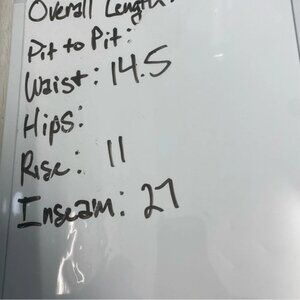 Overall Length:
Pit to Pit:
Waist: 14.5
Hips:
Rise: 11
Inseam: 27